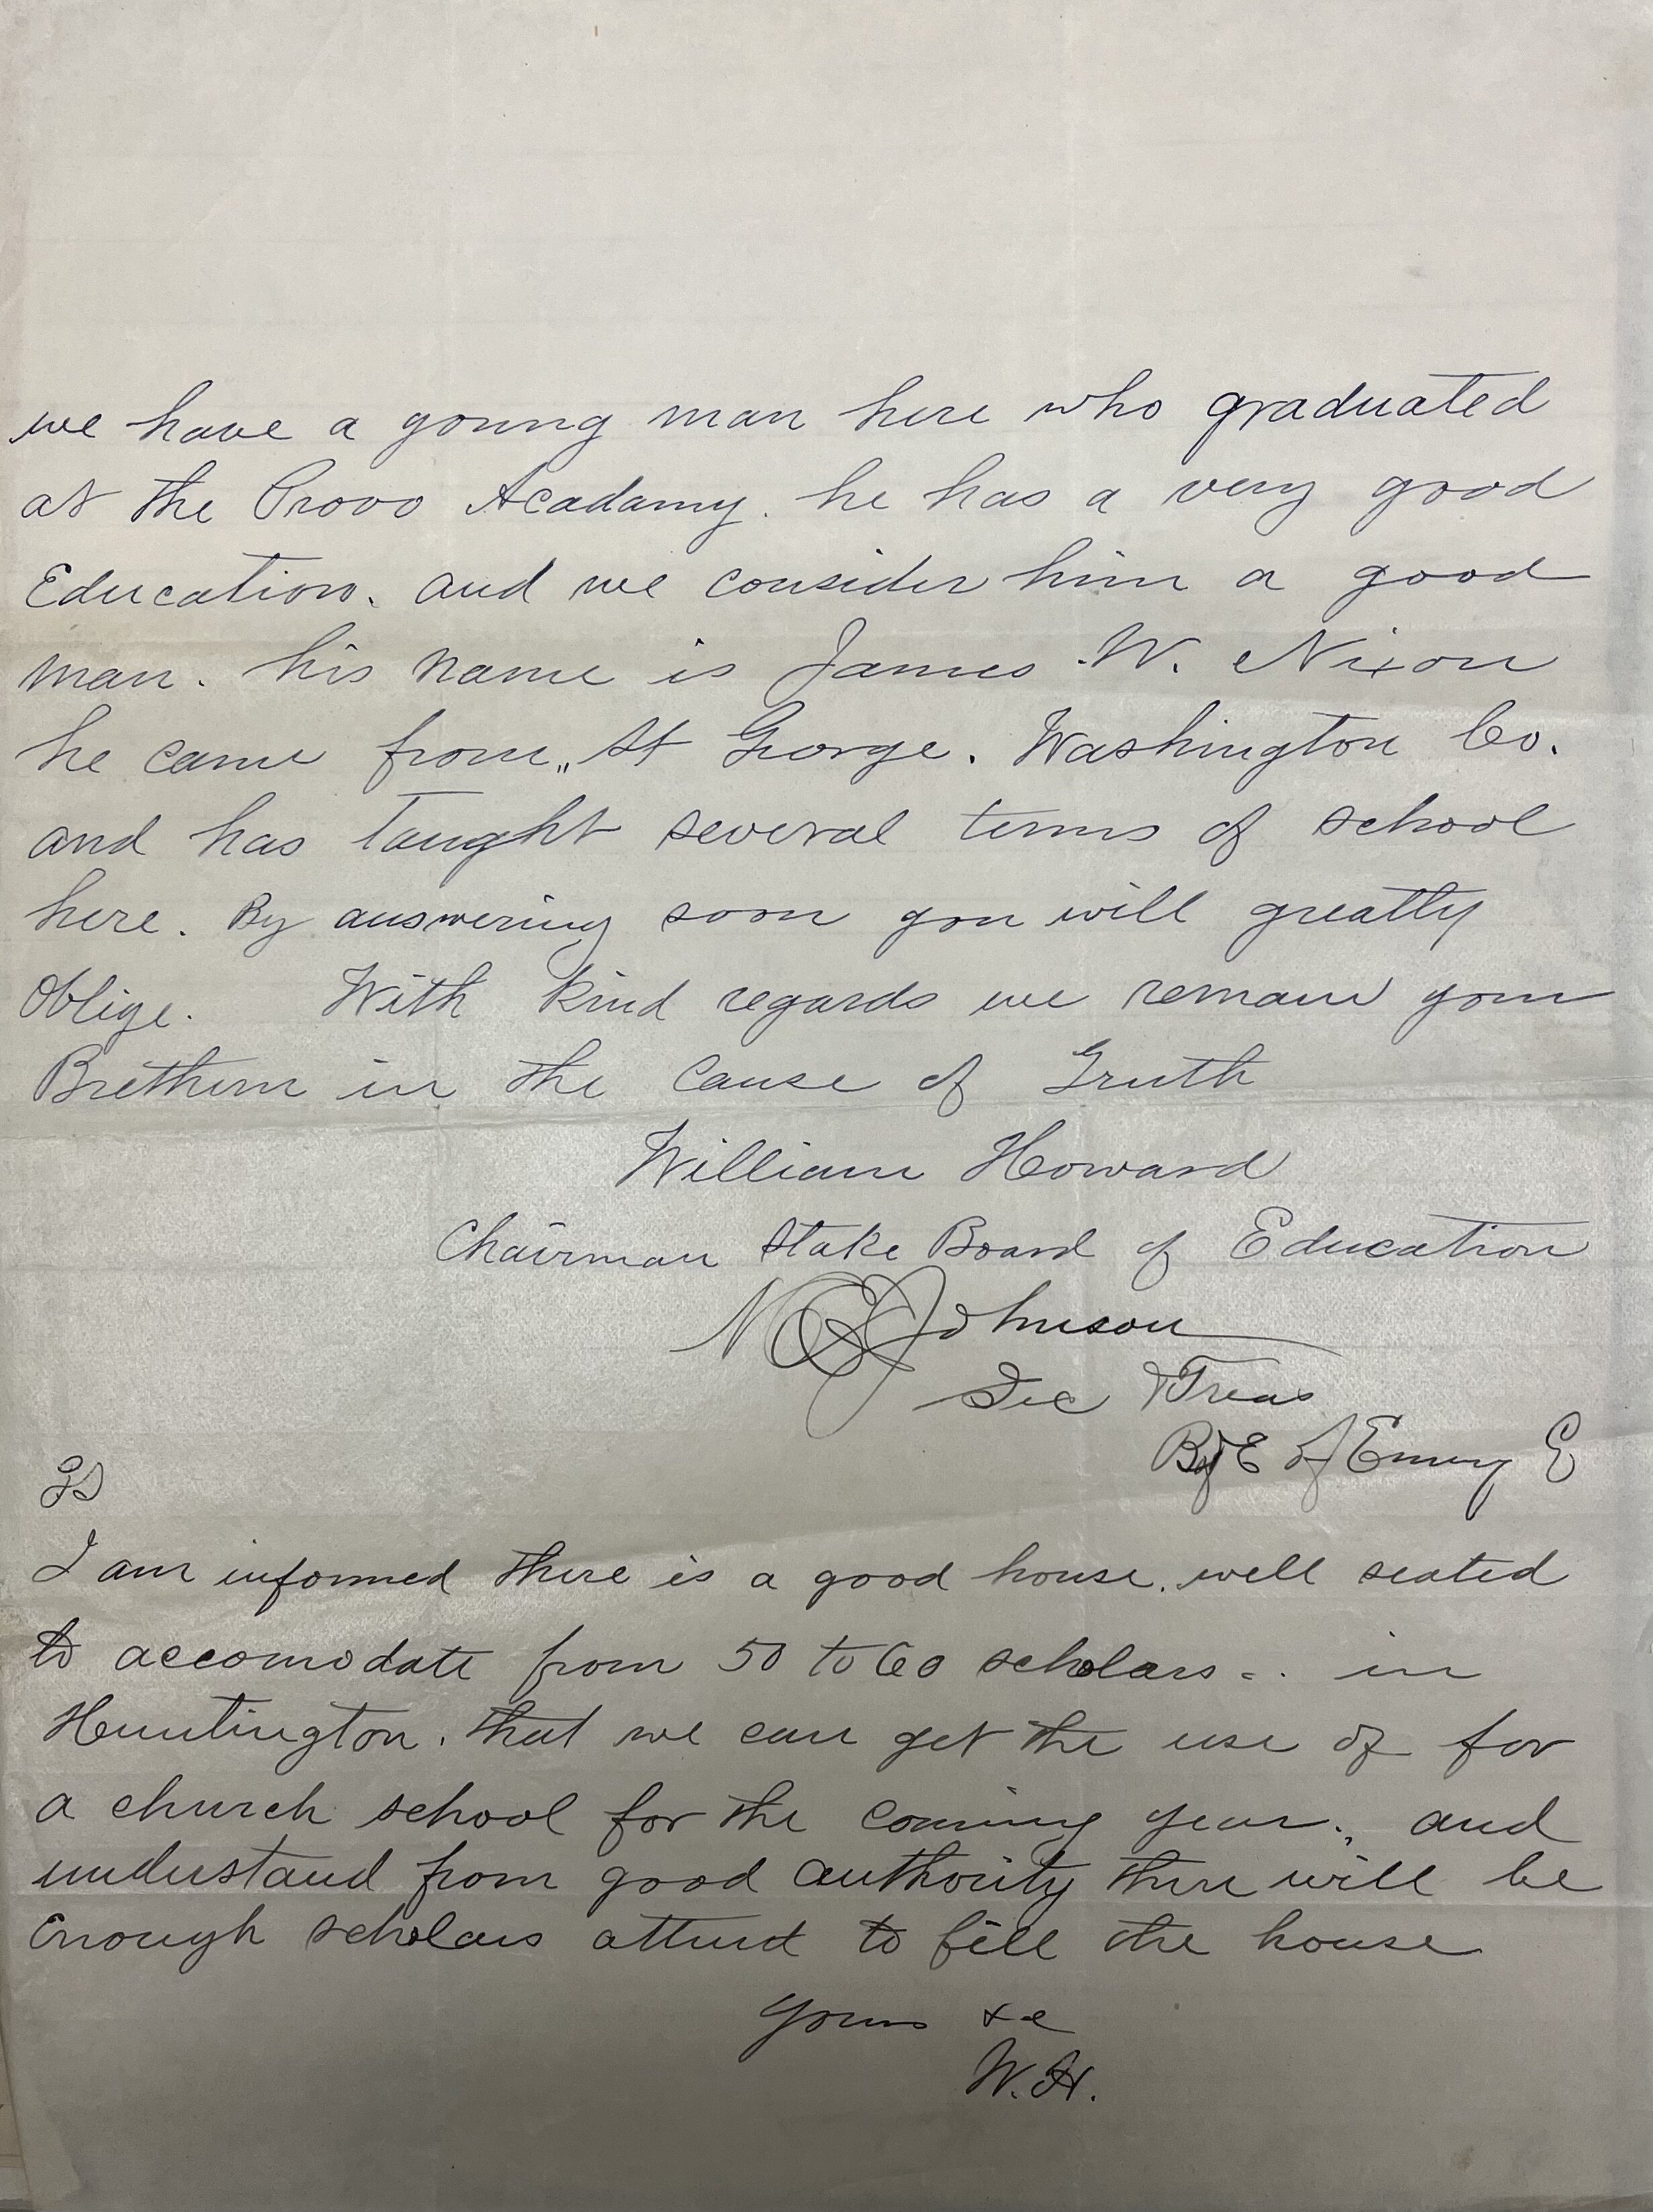 we have a young man here who graduated
at the Provo Acadamy. he has a very good
Education. and we consider him a good
man. his name is James W. Nixon
he came from,, St George. Washington Co.
and has Taught several terms of school
here. By answering soon you will greatly
Oblige. With kind regards we remain your
Brethern in the Cause of Truth
William Howard
Chairman Stake Board of Education
Johnson
Sec & Treas
B of E of Emery
I am informed there is a good house. well seated
to accomodate from 50 to 60 scholars - . in
Huntington. that we can get the use of for
a church school for the coming year., and
understand from good authority there will be
Enough scholars attend to fill the house
Yours &c
W.H.